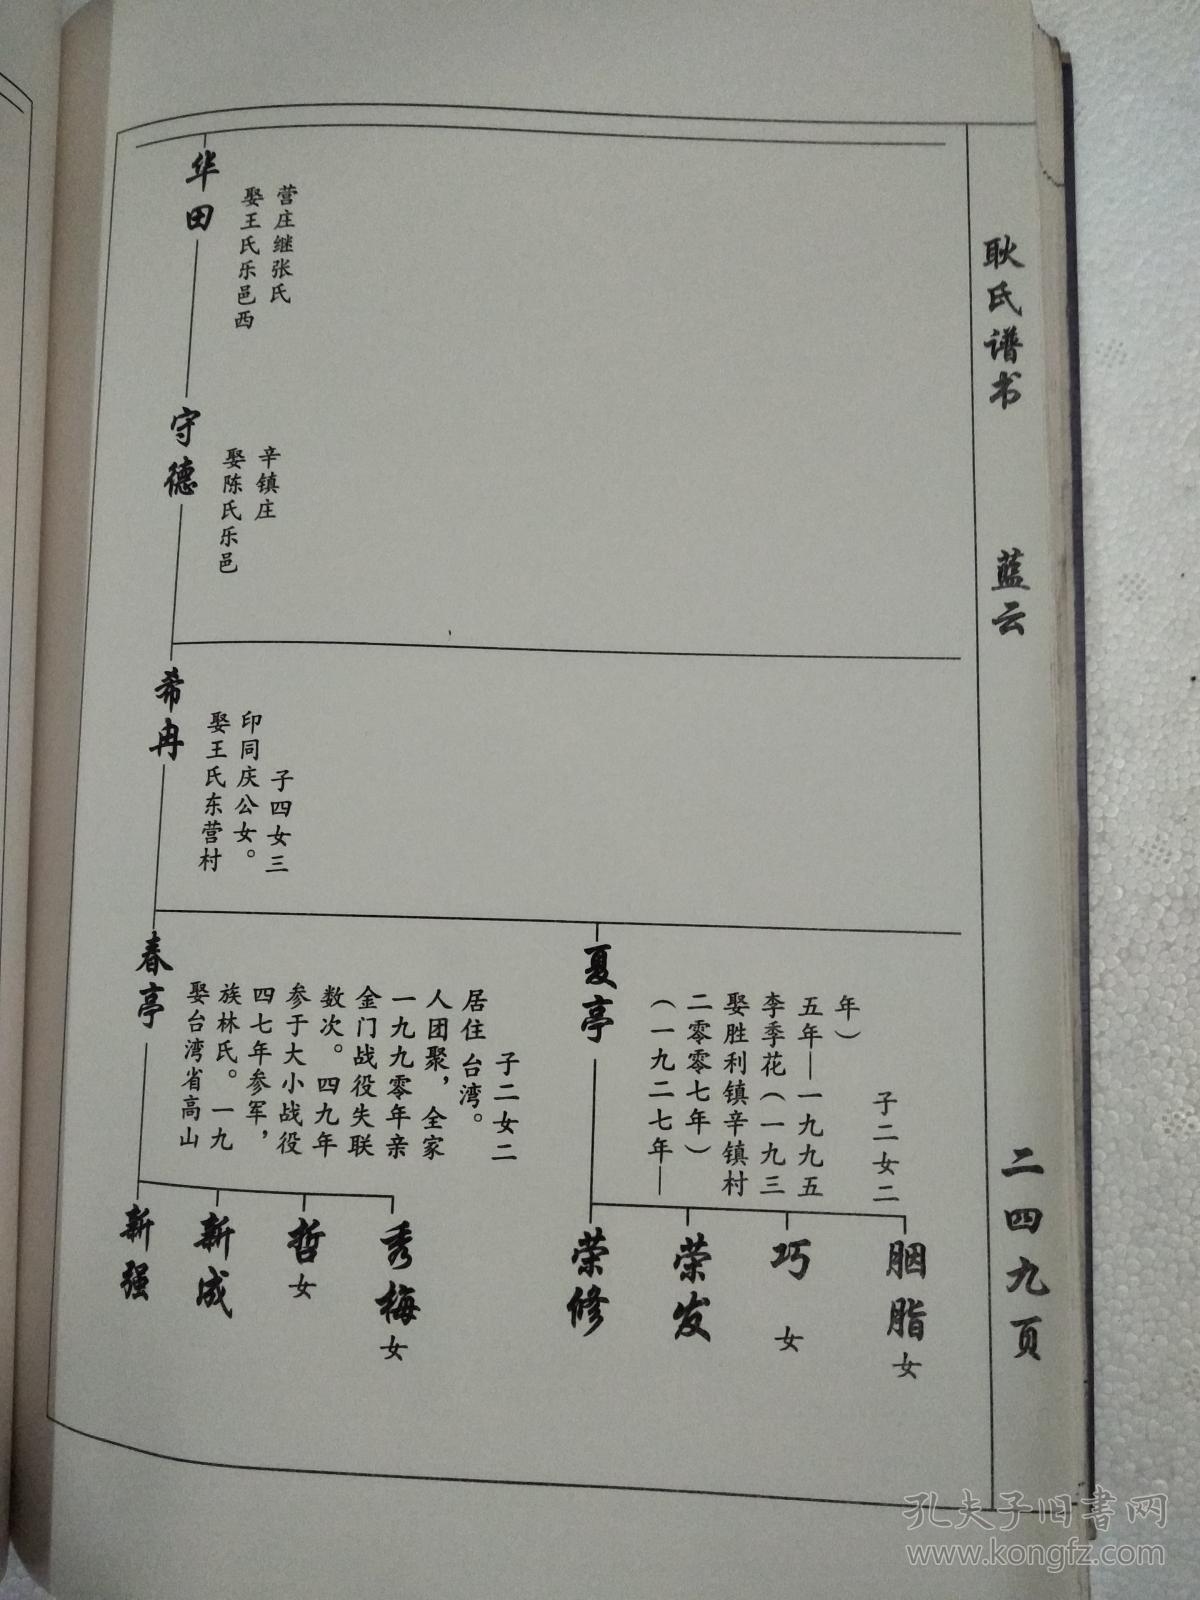 耿氏谱书
蓝云
二四九页
华田
娶王氏乐邑西
营庄继张氏
守德
娶陈氏乐邑
辛镇庄
希冉
娶王氏东营村
印同庆公女。
子四女三
春亭
娶台湾省高山
族林氏。一九
四七年参军，
参于大小战役
数次。四九年
金门战役失联
一九九零年亲
人团聚，全家
居住台湾。
子二女二
夏亭
（一九二七年—
二零零七年）
娶胜利镇辛镇村
李季花（一九三
五年—一九九五
年）
子二女二
新强
新成
哲女
秀梅女
荣修
荣发
巧女
胭脂女
孔夫子旧书网
www.kongfz.com